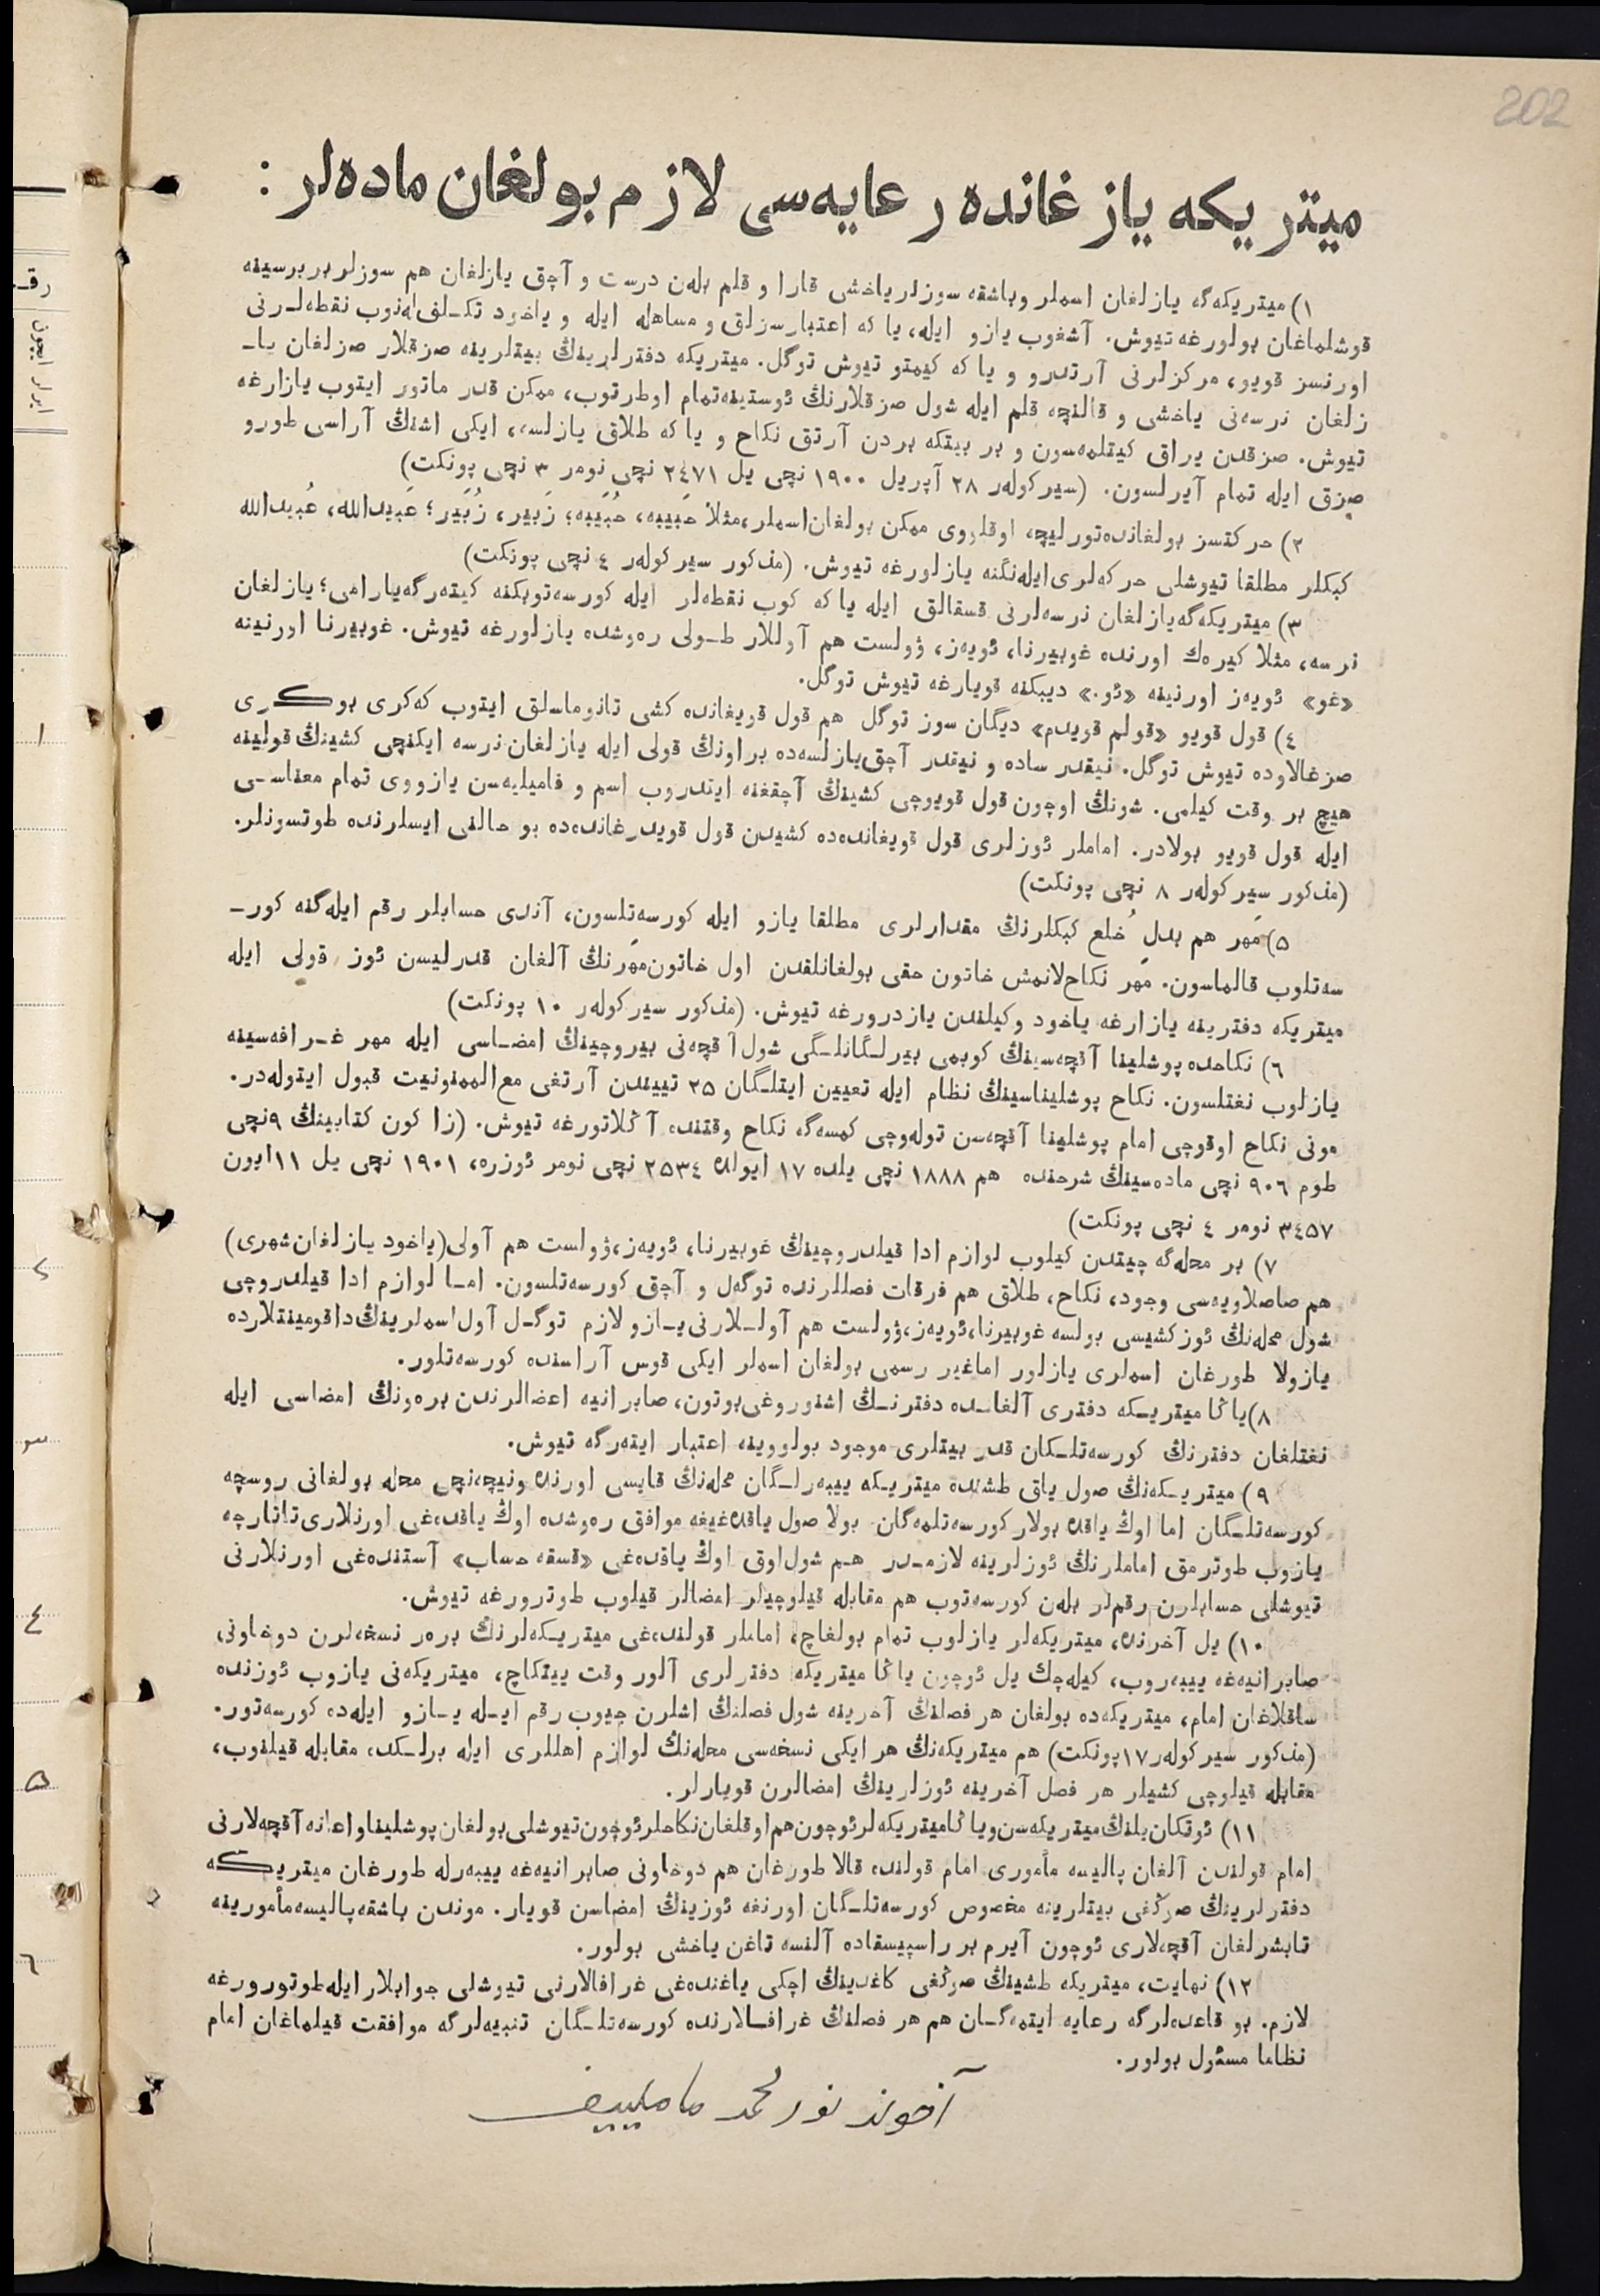 202
میتریکه یازغانده رعایه‌سی لازم بولغان ماده‌لر :
١) میتریکه‌گه یازلغان اسملر وباشقه سوزلر یاخشی قارا و قلم بله‌ن درست و آچق یازلغان هم سوزلر بربرسینه
قوشلماغان بولورغه تیوش. آشغوب یازو ایله، یا که اعتبارسزلق و مساهله ایله و یاخود تکـلف له‌نوب نقطه‌لـرنی
اورنسز قویو، مرکزلرنی آرتدرو و یا که کیمتو تیوش توگل. میتریکه دفترلرینڭ بیتلرینه صزقلار صزلغان یاـ
زلغان نرسه‌نی یاخشی و قالنچه قلم ایله شول صزقلارنڭ ئوستینه‌تمام اوطرتوب، ممکن قدر ماتور ایتوب یازارغه
تیوش. صزقدن یراق کیتلمه‌سون و بر بیتکه بردن آرتق نکاح و یا که طلاق یازلسه، ایکی اشنڭ آراسی طورو
صزق ایله تمام آیرلسون. (سیرکولهر ٢٨ آپریل ١٩٠٠ نچی یل ٢٤٧١ نچی نومر ٣ نچی پونکت)
٢) حرکتسز بولغانده‌تورلیچه اوقلووی ممکن بولغان‌اسملر،مثلا حَبیبه، حُبَیبه؛ زَبیر، زُبَیر؛ عَبیدالله، عُبیدالله
کبکلر مطلقا تیوشلی حرکه‌لری‌ایله‌نگنه یازلورغه تیوش. (مذکور سیرکولهر ٤ نچی پونکت)
٣) میتریکه‌گه‌یازلغان نرسه‌لرنی قسقالق ایله یا که کوب نقطه‌لر ایله کورسه‌توبکنه کیته‌رگه‌یارامی؛ یازلغان
نرسه، مثلا کیره‌ك اورنده غوبیرنا، ئویه‌ز، وٚولست هم آوللار طـولی ره‌وشده یازلورغه تیوش. غوبیرنا اورنینه
«غو» ئویه‌ز اورنینه «ئو.» دیبکنه قویارغه تیوش توگل.
٤) قول قویو «قولم قویدم» دیگان سوز توگل هم قول قویغانده کشی تانوماسلق ایتوب که‌کری بوکـری
صزغالاوده تیوش توگل. نیقدر ساده و نیقدر آچق‌یازلسه‌ده براونڭ قولی ایله یازلغان‌نرسه ایکنچی کشینڭ قولینه
هیچ بر وقت کیلمی. شونڭ اوچون قول قویوچی کشینڭ آچقغنه ایتدروب اسم و فامیلیه‌سن یازووی تمام معناسـی
ایله قول قویو بولادر. اماملر ئوزلری قول قویغانده‌ده کشیدن قول قویدرغانده‌ده بو حالنی ایسلرنده طوتسونلر.
(مذکور سیرکولهر ٨ نچی پونکت)
٥) مَهر هم بدلِ خُلع کبکلرنڭ مقدارلری مطلقا یازو ایله کورسه‌تلسون، آندی حسابلر رقم ایله‌گنه کورـ
سه‌تلوب قالماسون. مَهر نکاح‌لانمش خاتون حقی بولغانلقدن اول خاتون‌مَهرنڭ آلغان قدرلیسن ئوز قولی ایله
میتریکه دفترینه یازارغه یاخود وکیلندن یازدرورغه تیوش. (مذکور سیرکولهر ١٠ پونکت)
٦) نکاحده پوشلینا آقچه‌سینڭ کوبمی بیرلـگانلـگی شول‌آقچه‌نی بیروچینڭ امضـاسی ایله مهر غـرافه‌سینه
یازلوب نغتلسون. نکاح پوشلیناسینڭ نظام ایله تعیین ایتلـگان ٢٥ تییندن آرتغی مع‌الممنونیت قبول ایتوله‌در.
مونی نکاح اوقوچی امام پوشلینا آقچه‌سن توله‌وچی کمسه‌گه نکاح وقتنده آڭلاتورغه تیوش. (زاکون کتابینڭ ٩نچی
طوم ٩٠٦ نچی ماده‌سینڭ شرحنده هم ١٨٨٨ نچی یلده ١٧ ایولده ٢٥٣٤ نچی نومر ئوزره، ١٩٠١ نچی یل ١١ایون
٣٤٥٧ نومر ٤ نچی پونکت)
٧) بر محله‌گه چیتدن کیلوب لوازم ادا قیلدروچینڭ غوبیرنا، ئویه‌ز،وٚولست هم آولی(یاخود یازلغان‌شهری)
هم صاصلاویه‌سی وجود، نکاح، طلاق هم فرقات فصللرنده توگه‌ل و آچق کورسه‌تلسون. امـا لوازم ادا قیلدروچی
شول محله‌نڭ ئوزکشیسی بولسه غوبیرنا،ئویه‌ز،وٚولست هم آولـلارنی‌یـازو لازم توگـل آول‌اسملرینڭ‌داقومینتلارده
یازولا طورغان اسملری یازلور اماغیر رسمی بولغان اسملر ایکی قوس آراسنده کورسه‌تلور.
٨)یاڭا میتریـکه دفتری آلغانـده دفترنـڭ اشنوروغی‌بوتون، صابرانیه اعضالرندن بره‌ونڭ امضاسی ایله
نغتلغان دفترنڭ کورسه‌تلـکان قدر بیتلری موجود بولووینه اعتبار ایته‌رگه تیوش.
٩) میتریـکه‌نڭ صول یاق طشنده میتریـکه ییبه‌رلـگان محله‌نڭ قایسی اورنده ونیچه‌نچی محله بولغانی روسچه
کورسه‌تلـگان اما اوڭ یاقده بولار کورسه‌تلمه‌گان بولا صول یاقده‌غیغه موافق ره‌وشده اوڭ یاقده‌غی اورنلاری‌تاتارچه
یازوب طوترمق اماملرنڭ ئوزلرینه لازمـدر هـم شول‌اوق اوڭ یاقده‌غی «قسقه حساب» آستنده‌غی اورنلارنی
تیوشلی حسابلرن رقملر بله‌ن کورسه‌توب هم مقابله قیلوچیلر امضالر قیلوب طوترورغه تیوش.
١٠) یل آخرنده، میتریکه‌لر یازلوب تمام بولغاچ، اماملر قولنده‌غی میتریـکه‌لرنڭ بره‌ر نسخه‌لرن دوخاونی
صابرانیه‌غه ییبه‌روب، کیله‌چك یل ئوچون یاڭا میتریکه دفترلری آلور وقت ییتکاچ، میتریکه‌نی یازوب ئوزنده
ساقلاغان امام، میتریکه‌ده بولغان هر فصلنڭ آخرینه شول فصلنڭ اشلرن جیوب رقم ایـله یـازو ایله‌ده کورسه‌تور.
(مذکور سیرکولهر ١٧پونکت) هم میتریکه‌نڭ هر ایکی نسخه‌سی محله‌نڭ لوازم اهللری ایله برلـکده مقابله قیلنوب،
مقابله قیلوچی کشیلر هر فصل آخرینه ئوزلرینڭ امضالرن قویارلر.
١١) ئوتکان‌یلنڭ‌میتریکه‌سن‌ویاڭامیتریکه‌لرئوچون‌هم‌اوقلغان‌نکاحلرئوچون‌تیوشلی‌بولغان‌پوشلیناواعانه‌آقچه‌لارنی
امام قولندن آلغان پالیسه مأموری امام قولنده قالا طورغان هم دوخاونی صابرانیه‌غه ییبه‌رله طورغان میتریـکه
دفترلرینڭ صوڭغی بیتلرینه مخصوص کورسه‌تلـگان اورنغه ئوزینڭ امضاسن قویار. موندن باشقه‌پالیسه‌مأمورینه
تابشرلغان آقچه‌لاری ئوچون آیرم بر راسپیسقاده آلنسه تاغن یاخشی بولور.
١٢) نهایت، میتریکه طشینڭ صوڭغی کاغدینڭ اچکی یاغنده‌غی غرافالارنی تیوشلی جوابلار ایله‌طوتورورغه
لازم. بو قاعده‌لرگه رعایه ایتمه‌گـان هم هر فصلنڭ غرافـالارنده کورسه‌تلـگان تنبیه‌لرگه موافقت قیلماغان امام
نظاما مسئول بولور.
آخوند نور محمد ماملییف
١
٢
٣
٤
٥
٦